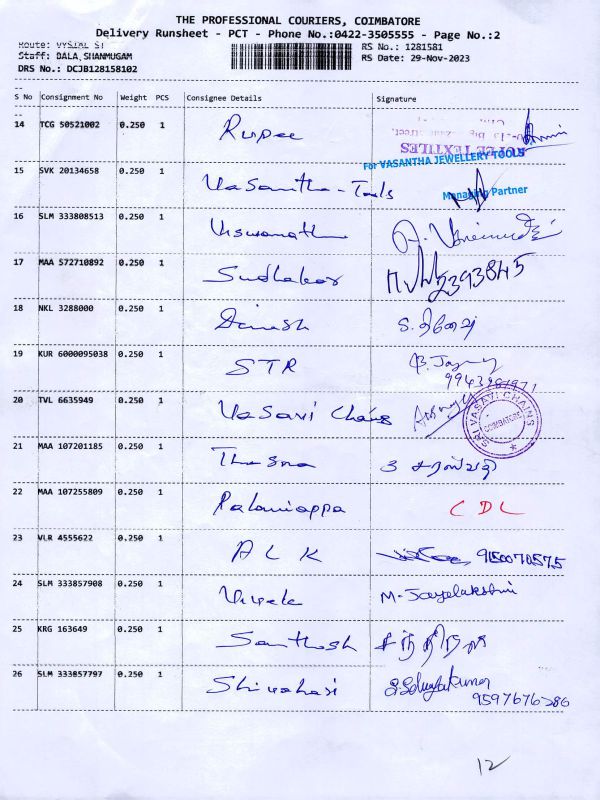 THE PROFESSIONAL COURIERS, COIMBATORE
Delivery Runsheet - PCT - Phone No.:0422-3505555 - Page No.:2
Route: VYSIAL ST
RS No.: 1281581
Staff: BALA SHANMUGAM
RS Date: 29-Nov-2023
DRS No.: DCJB128158102
S No Consignment No Weight PCS Consignee Details Signature
14 TCG 50521002 0.250 1 Rupee
TEXTILES
15 SVK 20134658 0.250 1 Vasantha-Tools For VASANTHA JEWELLERY TOOLS
Managing Partner
16 SLM 333808513 0.250 1 Viswanath
17 MAA 572710892 0.250 1 Sudhakar
18 NKL 3288000 0.250 1 Dinesh
19 KUR 6000095038 0.250 1 STR
20 TVL 6635949 0.250 1 Vasavi Chains SRI VASAVI CHAINS COIMBATORE
21 MAA 107201185 0.250 1
22 MAA 107255809 0.250 1 Palaniappa CDL
23 VLR 4555622 0.250 1 ALK 9150070575
24 SLM 333857908 0.250 1 M-Jayalakshmi
25 KRG 163649 0.250 1 Santhosh
26 SLM 333857797 0.250 1 Shivahari
9597676286
12